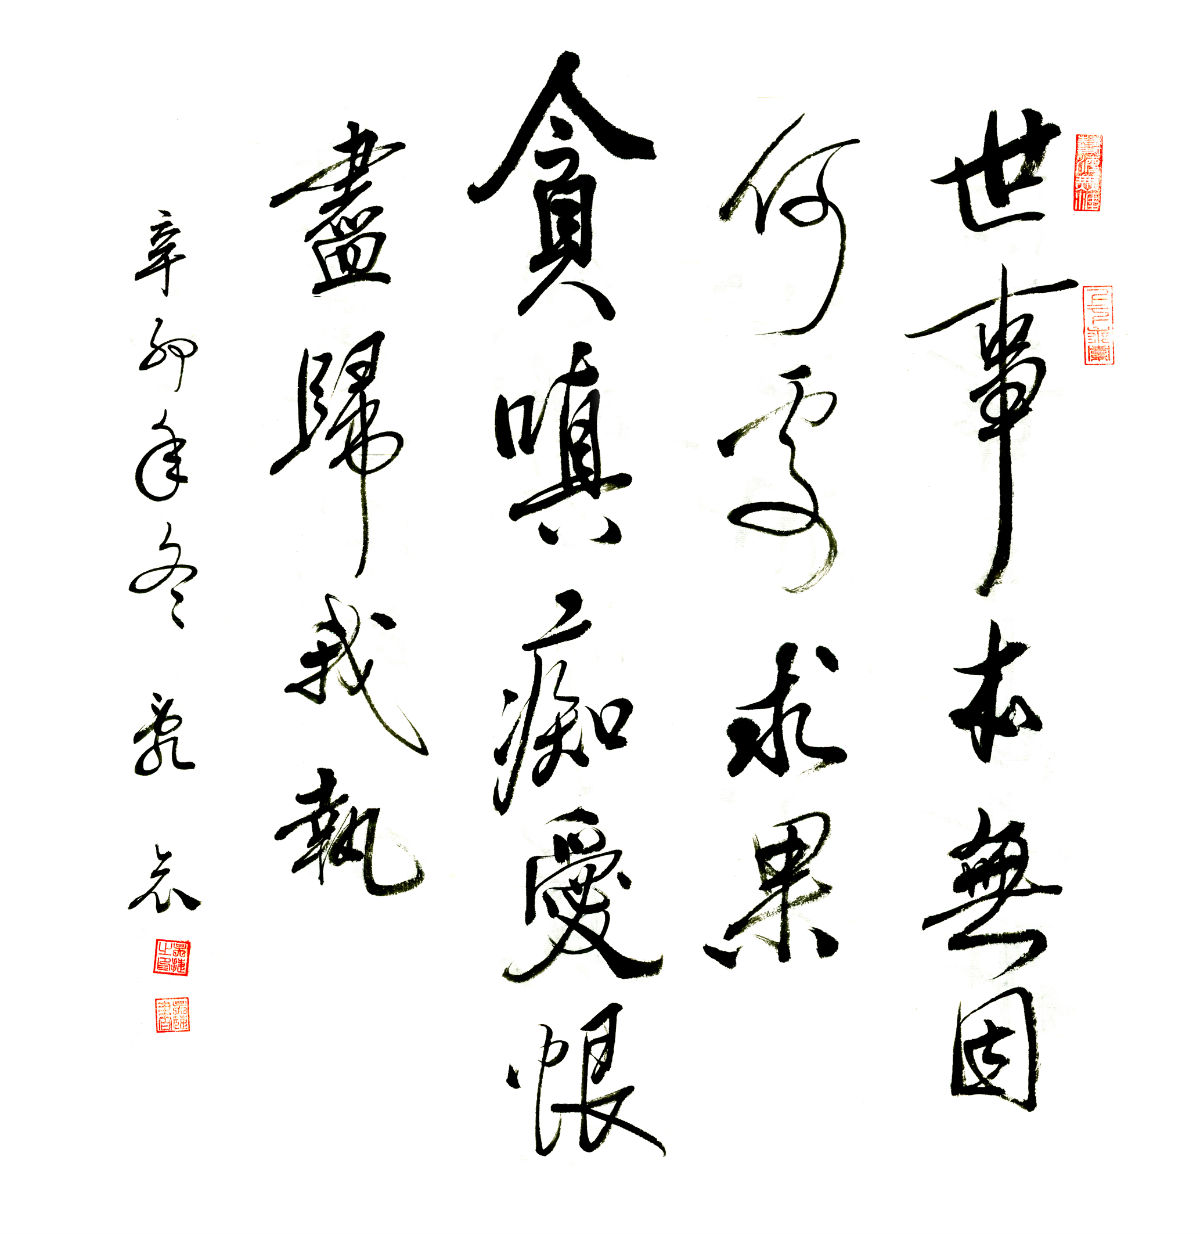 世事本無因
何處求果
貪嗔痴愛恨
盡歸我執
辛卯年冬